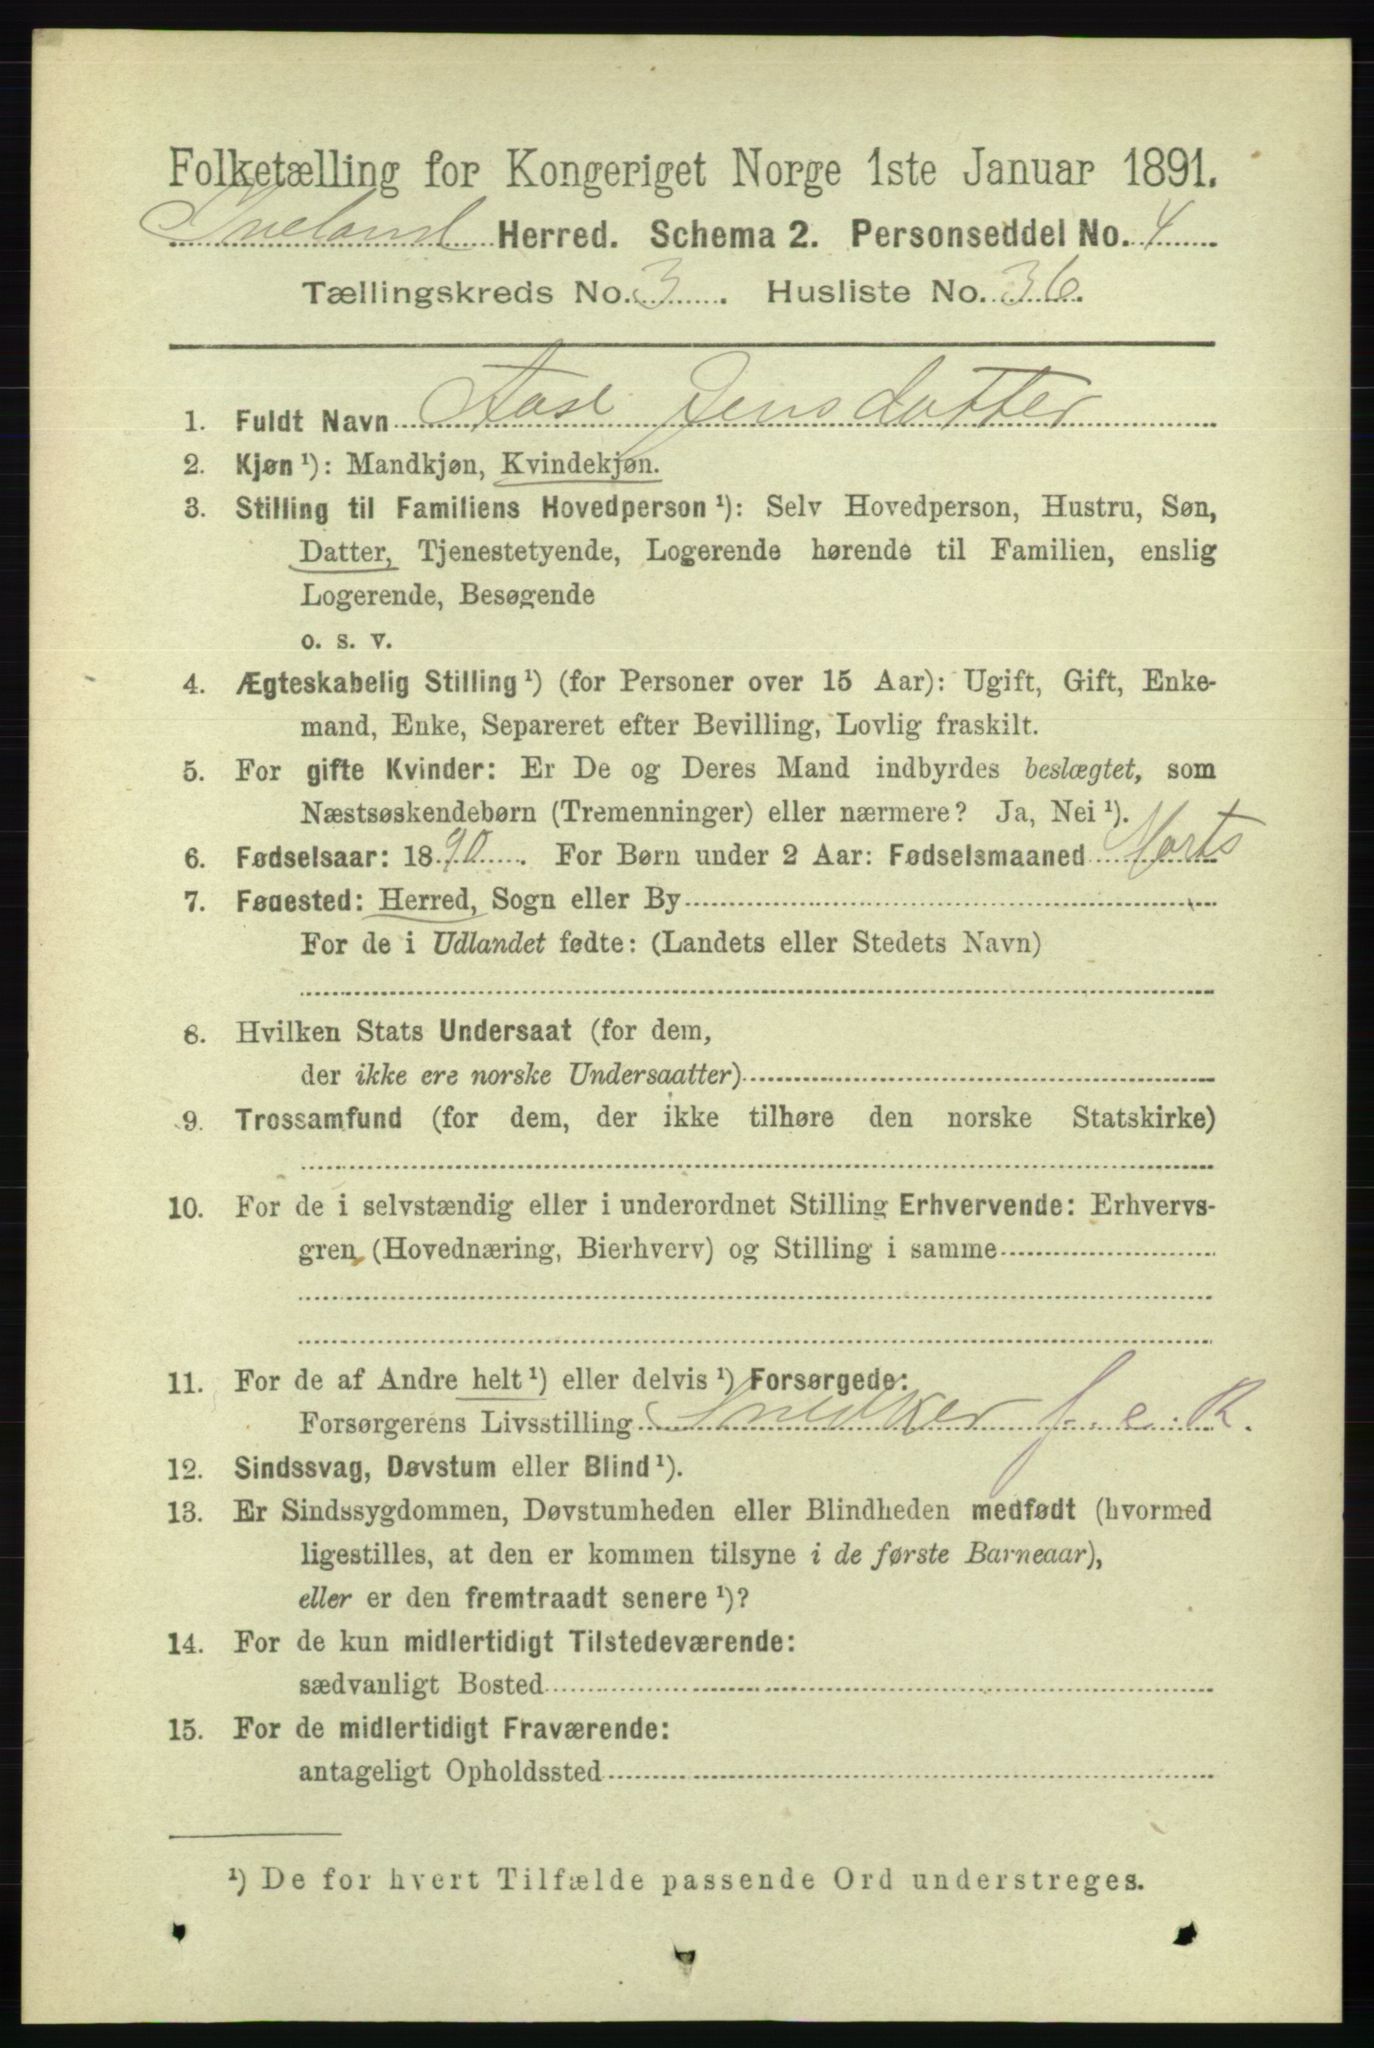 Folketælling for Kongeriget Norge 1ste Januar 1891.
Iveland Herred. Schema 2. Personseddel No. 4
Tællingskreds No. 3. Husliste No. 36.
1. Fuldt Navn Aase Jensdatter
2. Kjøn ¹): Mandkjøn, Kvindekjøn.
3. Stilling til Familiens Hovedperson ¹): Selv Hovedperson, Hustru, Søn,
Datter, Tjenestetyende, Logerende hørende til Familien, enslig
Logerende, Besøgende
o. s. v.
4. Ægteskabelig Stilling ¹) (for Personer over 15 Aar): Ugift, Gift, Enke-
mand, Enke, Separeret efter Bevilling, Lovlig fraskilt.
5. For gifte Kvinder: Er De og Deres Mand indbyrdes beslægtet, som
Næstsøskendebørn (Tremenninger) eller nærmere? Ja, Nei ¹).
6. Fødselsaar: 1890. For Børn under 2 Aar: Fødselsmaaned Marts
7. Fødested: Herred, Sogn eller By
For de i Udlandet fødte: (Landets eller Stedets Navn)
8. Hvilken Stats Undersaat (for dem,
der ikke ere norske Undersaatter)
9. Trossamfund (for dem, der ikke tilhøre den norske Statskirke)
10. For de i selvstændig eller i underordnet Stilling Erhvervende: Erhvervs-
gren (Hovednæring, Bierhverv) og Stilling i samme
11. For de af Andre helt ¹) eller delvis ¹) Forsørgede:
Forsørgerens Livsstilling Snedker f. e. R.
12. Sindssvag, Døvstum eller Blind ¹).
13. Er Sindssygdommen, Døvstumheden eller Blindheden medfødt (hvormed
ligestilles, at den er kommen tilsyne i de første Barneaar),
eller er den fremtraadt senere ¹)?
14. For de kun midlertidigt Tilstedeværende:
sædvanligt Bosted
15. For de midlertidigt Fraværende:
antageligt Opholdssted
¹) De for hvert Tilfælde passende Ord understreges.